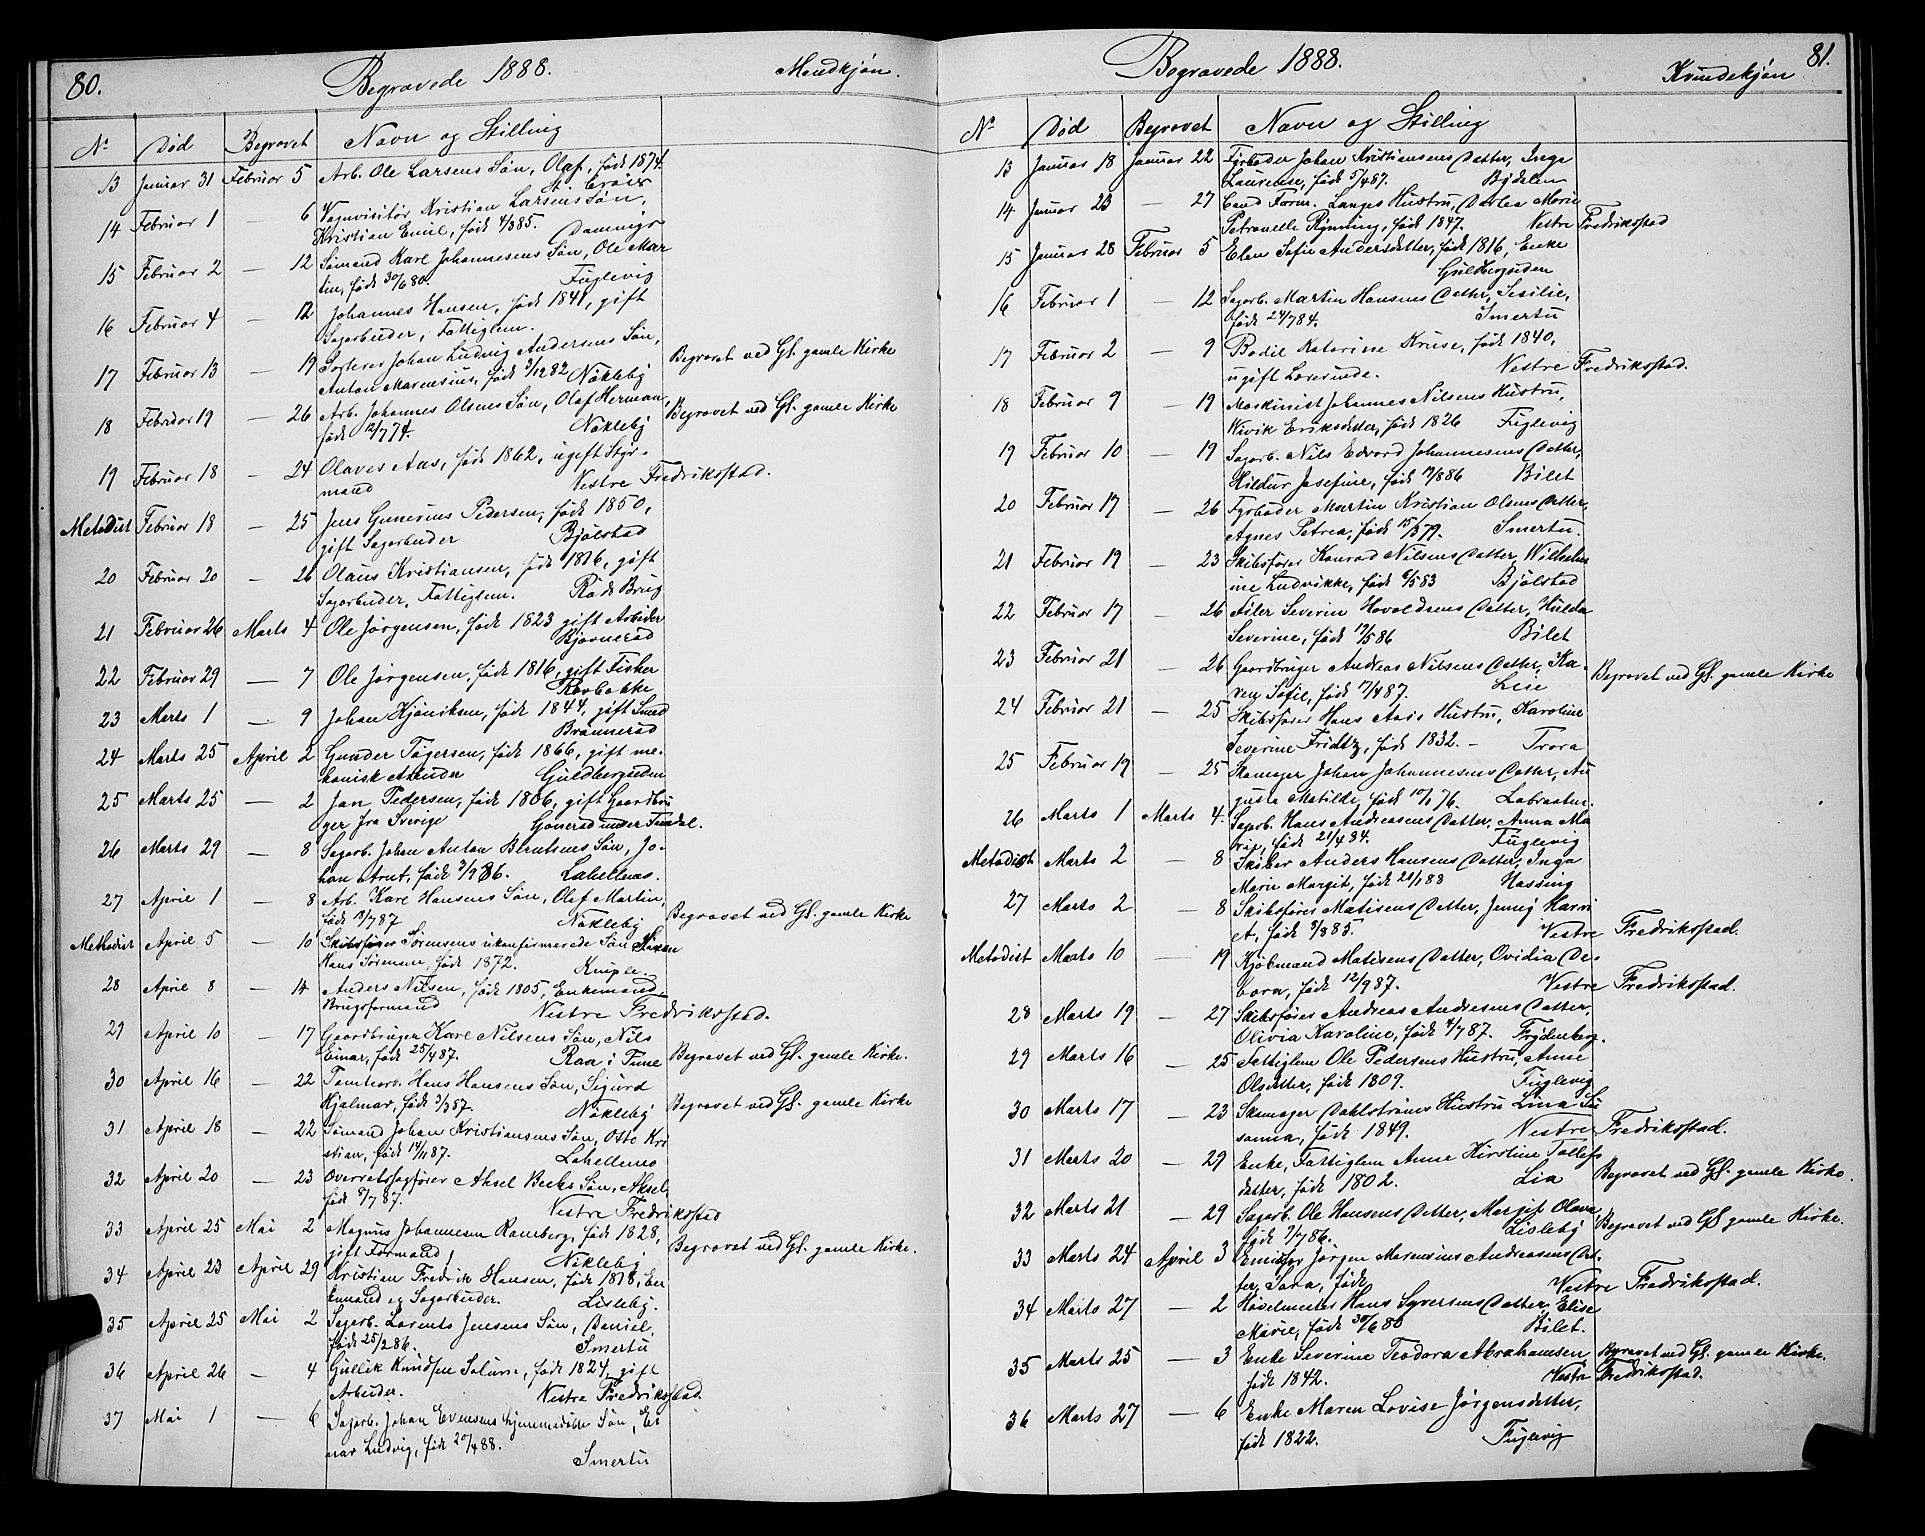 80.
Begravede 1888.
Mandkjøn.
No Død Begravet Navn og Stilling
13 Januar 31 Februar 5 Arb. Ole Larsens Søn, Olaf, født 1874.
St. Croix
14 Februar 1 — 6 Vognvisitør Kristian Larsens Søn,
Kristian Emil, født 4/3 85. Damnigs
15 Februar 2 — 12 Sømand Karl Johannesens Søn, Ole Mar
tin, født 30/6 80. Fuglevig
16 Februar 4 — 12 Johannes Hansen, født 1841, gift
Sagarbeider, Fattiglem.
17 Februar 13 — 19 Sorterer Johan Ludvig Andersens Søn, Begravet ved Gl. gamle Kirke
Anton Marensius, født 3/12 82 Nökleby
18 Februar 19 — 26 Arb. Johannes Olsens Søn, Olaf Herman, Begravet ved Gl. gamle Kirke
født 12/7 74. Nökleby
19 Februar 18 — 24 Olaves Aas, født 1862, ugift Styr-
mand Vestre Fredriksstad.
Metodist Februar 18 — 25 Jens Gunerius Pedersen, født 1850,
gift Sagarbeider Bjølstad
20 Februar 20 — 26 Olaus Kristiansen, født 1816, gift
Sagarbeider, Fattiglem. Røds Brug
21 Februar 26 Marts 4 Ole Jørgensen, født 1823 gift Arbeider
Bjørnerød
22 Februar 29 — 7 Ole Jørgensen, født 1816, gift Fisker
Ravbakke
23 Marts 1 — 9 Johan Kjøniksen, født 1844, gift Smed
Brønnerød
24 Marts 25 April 2 Gunder Tøgersen, født 1866, gift me-
kanisk Arbeider Guldbergseden
25 Marts 25 — 2 Jan Pedersen, født 1806, gift Gaardbru
ger fra Sverige Gonerød under Tindal.
26 Marts 29 — 8 Sagarb. Johan Anton Berntsens Søn, Jo-
han Arnt, født 3/9 86. Labellnas.
27 April 1 — 8 Arb. Karl Hansens Søn, Olaf Martin, Begravet ved Gl. gamle Kirke
født 18/7 87 Nökleby
Methodist April 5 — 10 Skibsfører Sørensens ukonfirmerede Søn
Hans Sørensen, født 1872. Kniple.
28 April 8 — 14 Anders Nilsen, født 1805, Enkemand,
Brugsformand Vestre Fredriksstad.
29 April 10 — 17 Gaardbruger Karl Nilsens Søn, Nils
Einar, født 25/4 87. Raa i Tune Begravet ved Gl. gamle Kirke.
30 April 16 — 22 Tomtearb. Hans Hansens Søn, Sigurd
Hjalmar, født 3/3 87. Nökleby Begravet ved Gl. gamle Kirke
31 April 18 — 22 Sømand Johan Kristiansens Søn, Otto Kri
stian, født 14/11 87. Labellmo
32 April 20 — 23 Overretssagfører Aksel Becks Søn, Aksel,
født 8/7 87. Vestre Fredriksstad
33 April 25 Mai 2 Magnus Johannesen Ramberg, født 1828,
gift Formand Nökleby Begravet ved Gl. gamle Kirke.
34 April 23 April 29 Kristian Fredrik Hansen, født 1818, En
kemand og Sagarbeider. Lisleby.
35 April 25 Mai 2 Sagarb. Lorents Jensens Søn, Daniel,
født 25/2 86. Smertu
36 April 26 — 4 Gullik Knudsen Solum, født 1824, gift
Arbeider. Vestre Fredriksstad.
37 Mai 1 — 6 Sagarb. Johan Evensens hjemmedøbte Søn, Ei
nar Ludvig, født 20/4 88.
Smertu
Begravede 1888.
Kvindekjøn
81.
No Død Begravet Navn og Stilling
13 Januar 18 Januar 22 Fyrbøder Johan Kristiansens Datter, Inga
Laurense, født 5/4 87. Bydalen
14 Januar 23 — 27 Cand. Farm. Langes Hustru, Dorlea Marie
Petronelle Rynning, født 1847. Vestre Fredriksstad
15 Januar 28 Februar 5 Elen Sofie Andersdatter, født 1816, Enke
Guldbergseden
16 Februar 1 — 12 Sagarb. Martin Hansens Datter, Sesilie,
født 24/7 84. Smertu
17 Februar 2 — 9 Bodil Katarine Kruse, født 1840,
ugift Lærerinde. Vestre Fredriksstad.
18 Februar 9 — 19 Maskinist Johannes Nilsens Hustru,
Ervik Eriksdatter, født 1826 Fuglevig
19 Februar 10 — 19 Sagarb. Nils Edvard Johannesens Datter,
Hildur Josefine, født 17/8 86 Bilet
20 Februar 17 — 26 Fyrbøder Martin Kristian Olsens Datter,
Agnes Petrea, født 15/3 79. Smertu.
21 Februar 19 — 23 Skibsfører Konrad Nilsens Datter, Wilhelm
ine Ludvikke, født 6/5 83 Bjølstad
22 Februar 17 — 26 Filer Severin Hovoldsens Datter, Hulda
Severine, født 17/5 86 Bilet
23 Februar 21 — 26 Gaardbruger Andreas Nilsens Datter, Ka-
ren Sofie, født 17/4 87. Leie Begravet ved Gl. gamle Kirke
24 Februar 21 — 25 Skibsfører Hans Aass Hustru, Karoline
Severine Fridtz, født 1832. — Trara
25 Februar 19 — 25 Skomager Johan Johannesens Datter, Au
gusta Matilde, født 10/1 76. Labraatur.
26 Marts 1 Marts 4. Sagarb. Hans Andreasens Datter, Anna Ma
rie, født 21/4 84. Fuglevig
Metodist Marts 2 — 8 Skiber Anders Hansens Datter, Inga
Marie Margit, født 21/1 88 Nassing
27 Marts 2 — 8 Skibsfører Matisens Datter, Jenny Harri
et, født 8/8 85. Vestre Fredriksstad.
Metodist Marts 10 — 19 Kjøbmand Matisens Datter, Ovidia De-
bora, født 12/9 87. Vestre Fredriksstad.
28 Marts 19 — 27 Skibsfører Andreas Andreasens Datter,
Olivia Karoline, født 4/7 87. Frydenberg.
29 Marts 16 — 25 Fattiglem Ole Pedersens Hustru, Anne
Olsdatter, født 1809. Fuglevig
30 Marts 17 — 23 Skomager Dahlstrøms Hustru Lina Su
sanna, født 1849. Vestre Fredriksstad.
31 Marts 20 — 29 Enke, Fattiglem Anne Kirstine Tollefs
datter, født 1802. Lia Begravet ved Gl. gamle Kirke.
32 Marts 21 — 29 Sagarb. Ole Hansens Datter, Margit Olava,
født 7/7 86. Lisleby Begravet ved Gl gamle Kirke.
33 Marts 24 April 3 Emissær Jørgen Marensius Andreasens Dat-
ter, Sara, født Vestre Fredriksstad.
34 Marts 27 — 2 Høvelmester Hans Syversens Datter, Elise
Marie, født 30/6 80 Bilet.
35 Marts 25 — 3 Enke Severine Teodora Abrahamsen Begravet ved Gl. gamle Kirke.
født 1842. Vestre Fredriksstad.
36 Marts 27 — 6 Enke Maren Lovise Jørgensdatter,
født 1822. Fuglevig